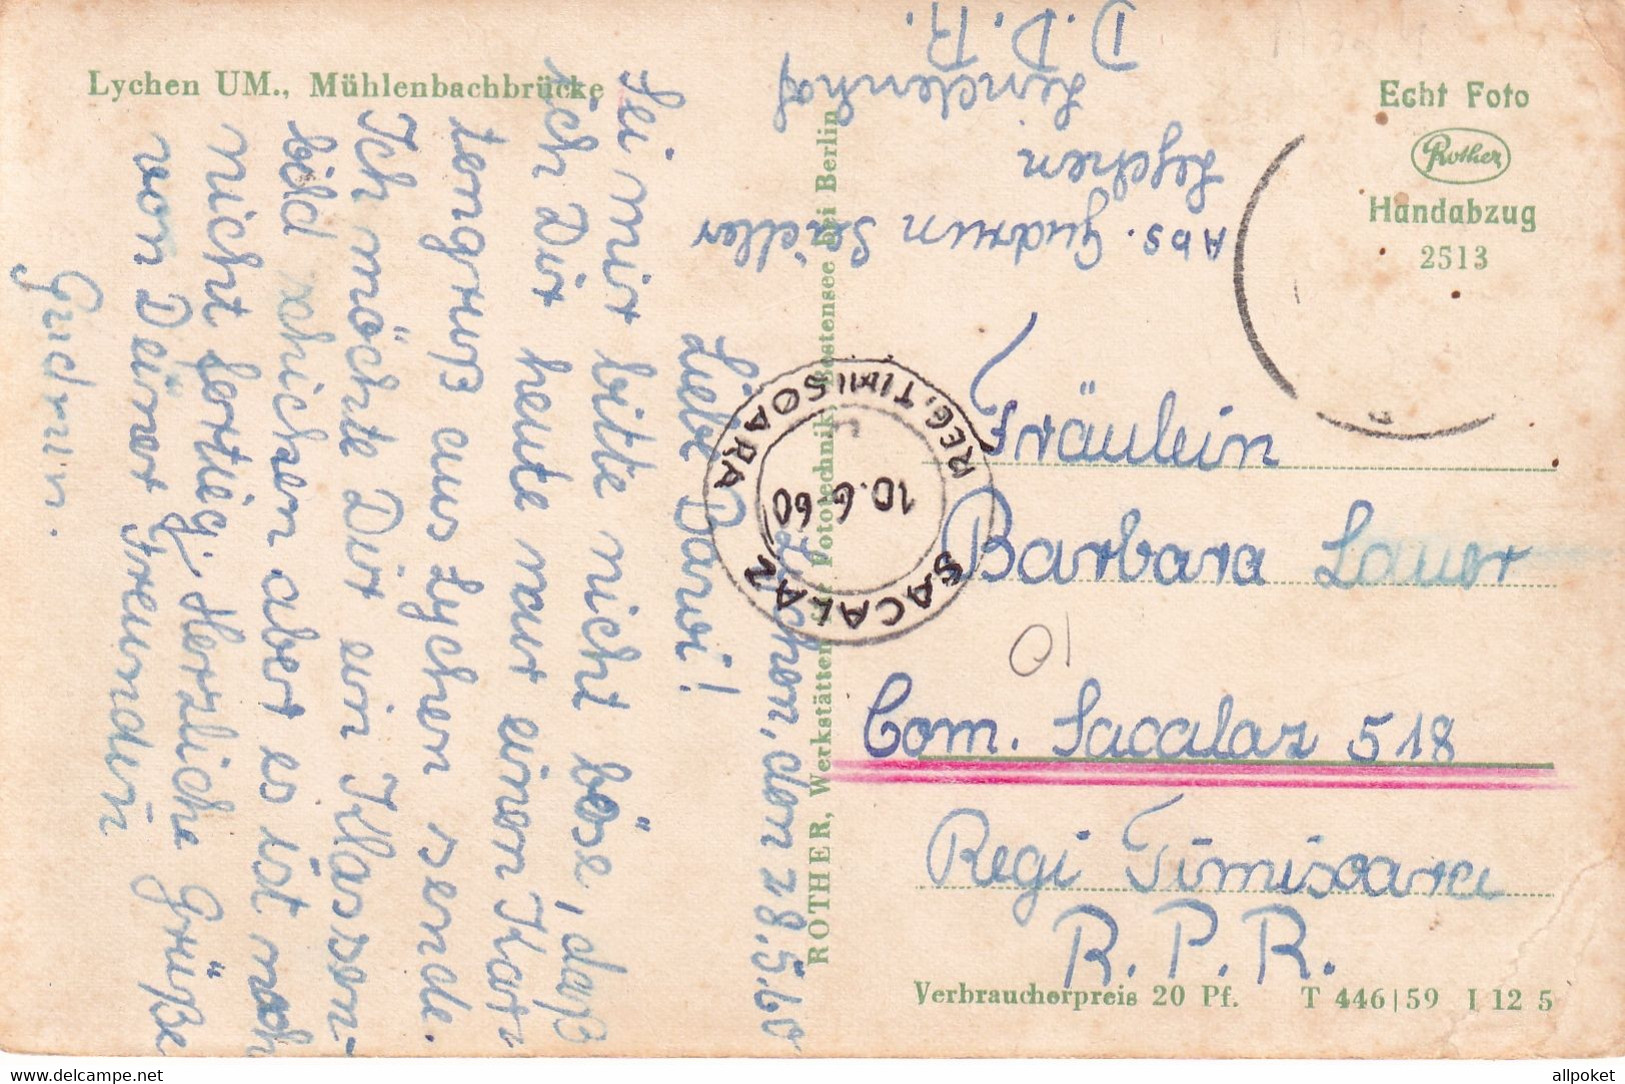 Lychen UM., Mühlenbachbrücke
Lychen, den 28.5.60
Liebe Barvi!
Sei mir bitte nicht böse, daß
ich Dir heute nur einen Kar-
tengruß aus Lychen sende.
Ich möchte Dir ein Klassen-
bild schicken aber es ist noch
nicht fertig. Herzliche Grüße
von Deiner Freundin
Gudrun.
Abs. Gudrun
Lychen
Lindenhof
D. D. R.
ROTHER, Werkstätten für Fototechnik, Bestensee bei Berlin
SACALAZ
REG. TIMISOARA
10. 6 60
Echt Foto
Rother
Handabzug
2513
Fräulein
Barbara Lauer
01
Com. Sacalaz 518
Regi Timisoara
R. P. R.
Verbraucherpreis 20 Pf. T 446|59 I 12 5
www.delcampe.net
allpoket